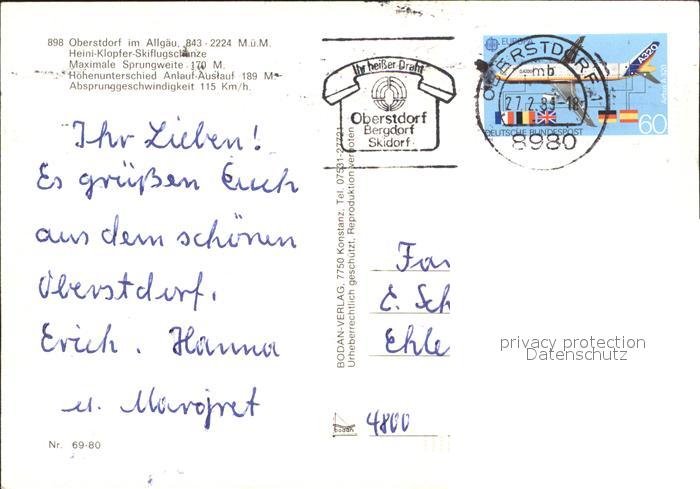 898 Oberstdorf im Allgäu, 843 - 2224 M.ü.M.
Heini-Klopfer-Skiflugschanze
Maximale Sprungweite 170 M.
Höhenunterschied Anlauf-Auslauf 189 M
Absprunggeschwindigkeit 115 Km/h.
Ihr heißer Draht
Oberstdorf
Bergdorf
Skidorf
EUROPA
A320
Airbus A320
OBERSTDORF 1
mb
27.2.89-18
8980
DEUTSCHE BUNDESPOST
60
Ihr Lieben!
Es grüßen Euch
aus dem schönen
Oberstdorf.
Erich. Hanna
u. Margret
Nr. 69-80
BODAN-VERLAG, 7750 Konstanz. Tel. 07531-22721
Urheberrechtlich geschützt. Reproduktion verboten
Fam
E. Sch
Ehle
privacy protection
Datenschutz
bodan
4800